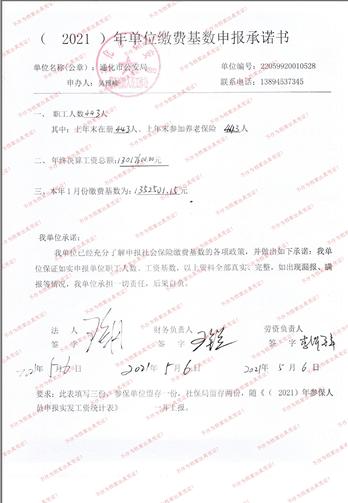 （ 2021 ）年单位缴费基数申报承诺书
单位名称(公章)：通化市公安局 单位编号：22059920010528
申办人： 联系电话：13894537345
一、职工人数443人
其中：上年末在册443人、上年末参加养老保险 443人
二、年终决算工资总额: 元
三、本年1月份缴费基数为：1352501.15元
我单位承诺：
我单位已经充分了解申报社会保险缴费基数的各项政策，并做出如下承诺：我单
位保证如实申报单位职工人数、工资基数，以上资料全部真实、完整，如出现漏报、瞒
报等情况，我单位承担一切责任，后果自负。
法 人 财务负责人 劳资负责人
签 字 签 字 签 字
2021年5月6日 2021年5月6日 2021年5月6日
要求：此表填写三份，参保单位留存一份，社保局留存两份，随《（ 2021）年参保人
员申报实发工资统计表》 一并上报。